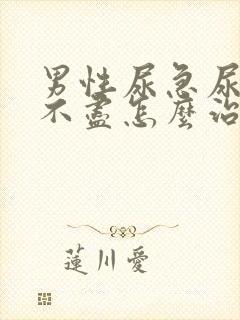 男性尿急尿
不盡怎麼治
蓮川愛